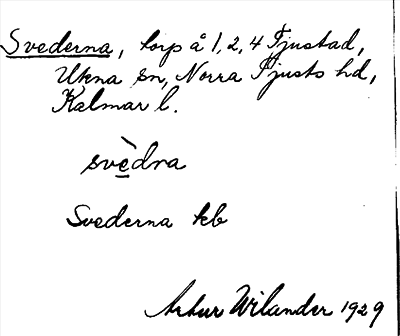 Svederna, torp å 1, 2, 4 Tjustad,
Ukna sn, Norra Tjusts hd,
Kalmar l.
svè̱dna
Svederna kb
Artur Wilander 1929